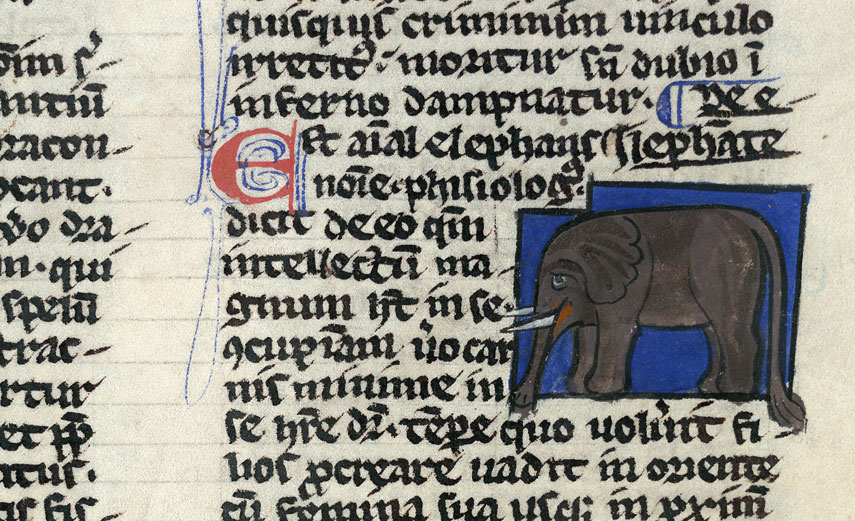 racon-
ocant.
dra-
m. qui
trac-
rtur
et p̄p̄
atus.
quisquis criminum uinculo
irretitꝰ. moritur sn̄ dubio ī
inferno dampnatur. De e-
Est aīal elephans lephāte
noīe. phisiologꝰ.
dicit de eo qm̄
intellectū ma-
gnum ht̄ in se.
ꝯcupīam u̾o car
nis minime in
se hr̄e dr̄. tēpe quo uolu̾it fi-
lios ꝓcreare uadit in oriente
cū femina sua usqꝫ in ꝓximū